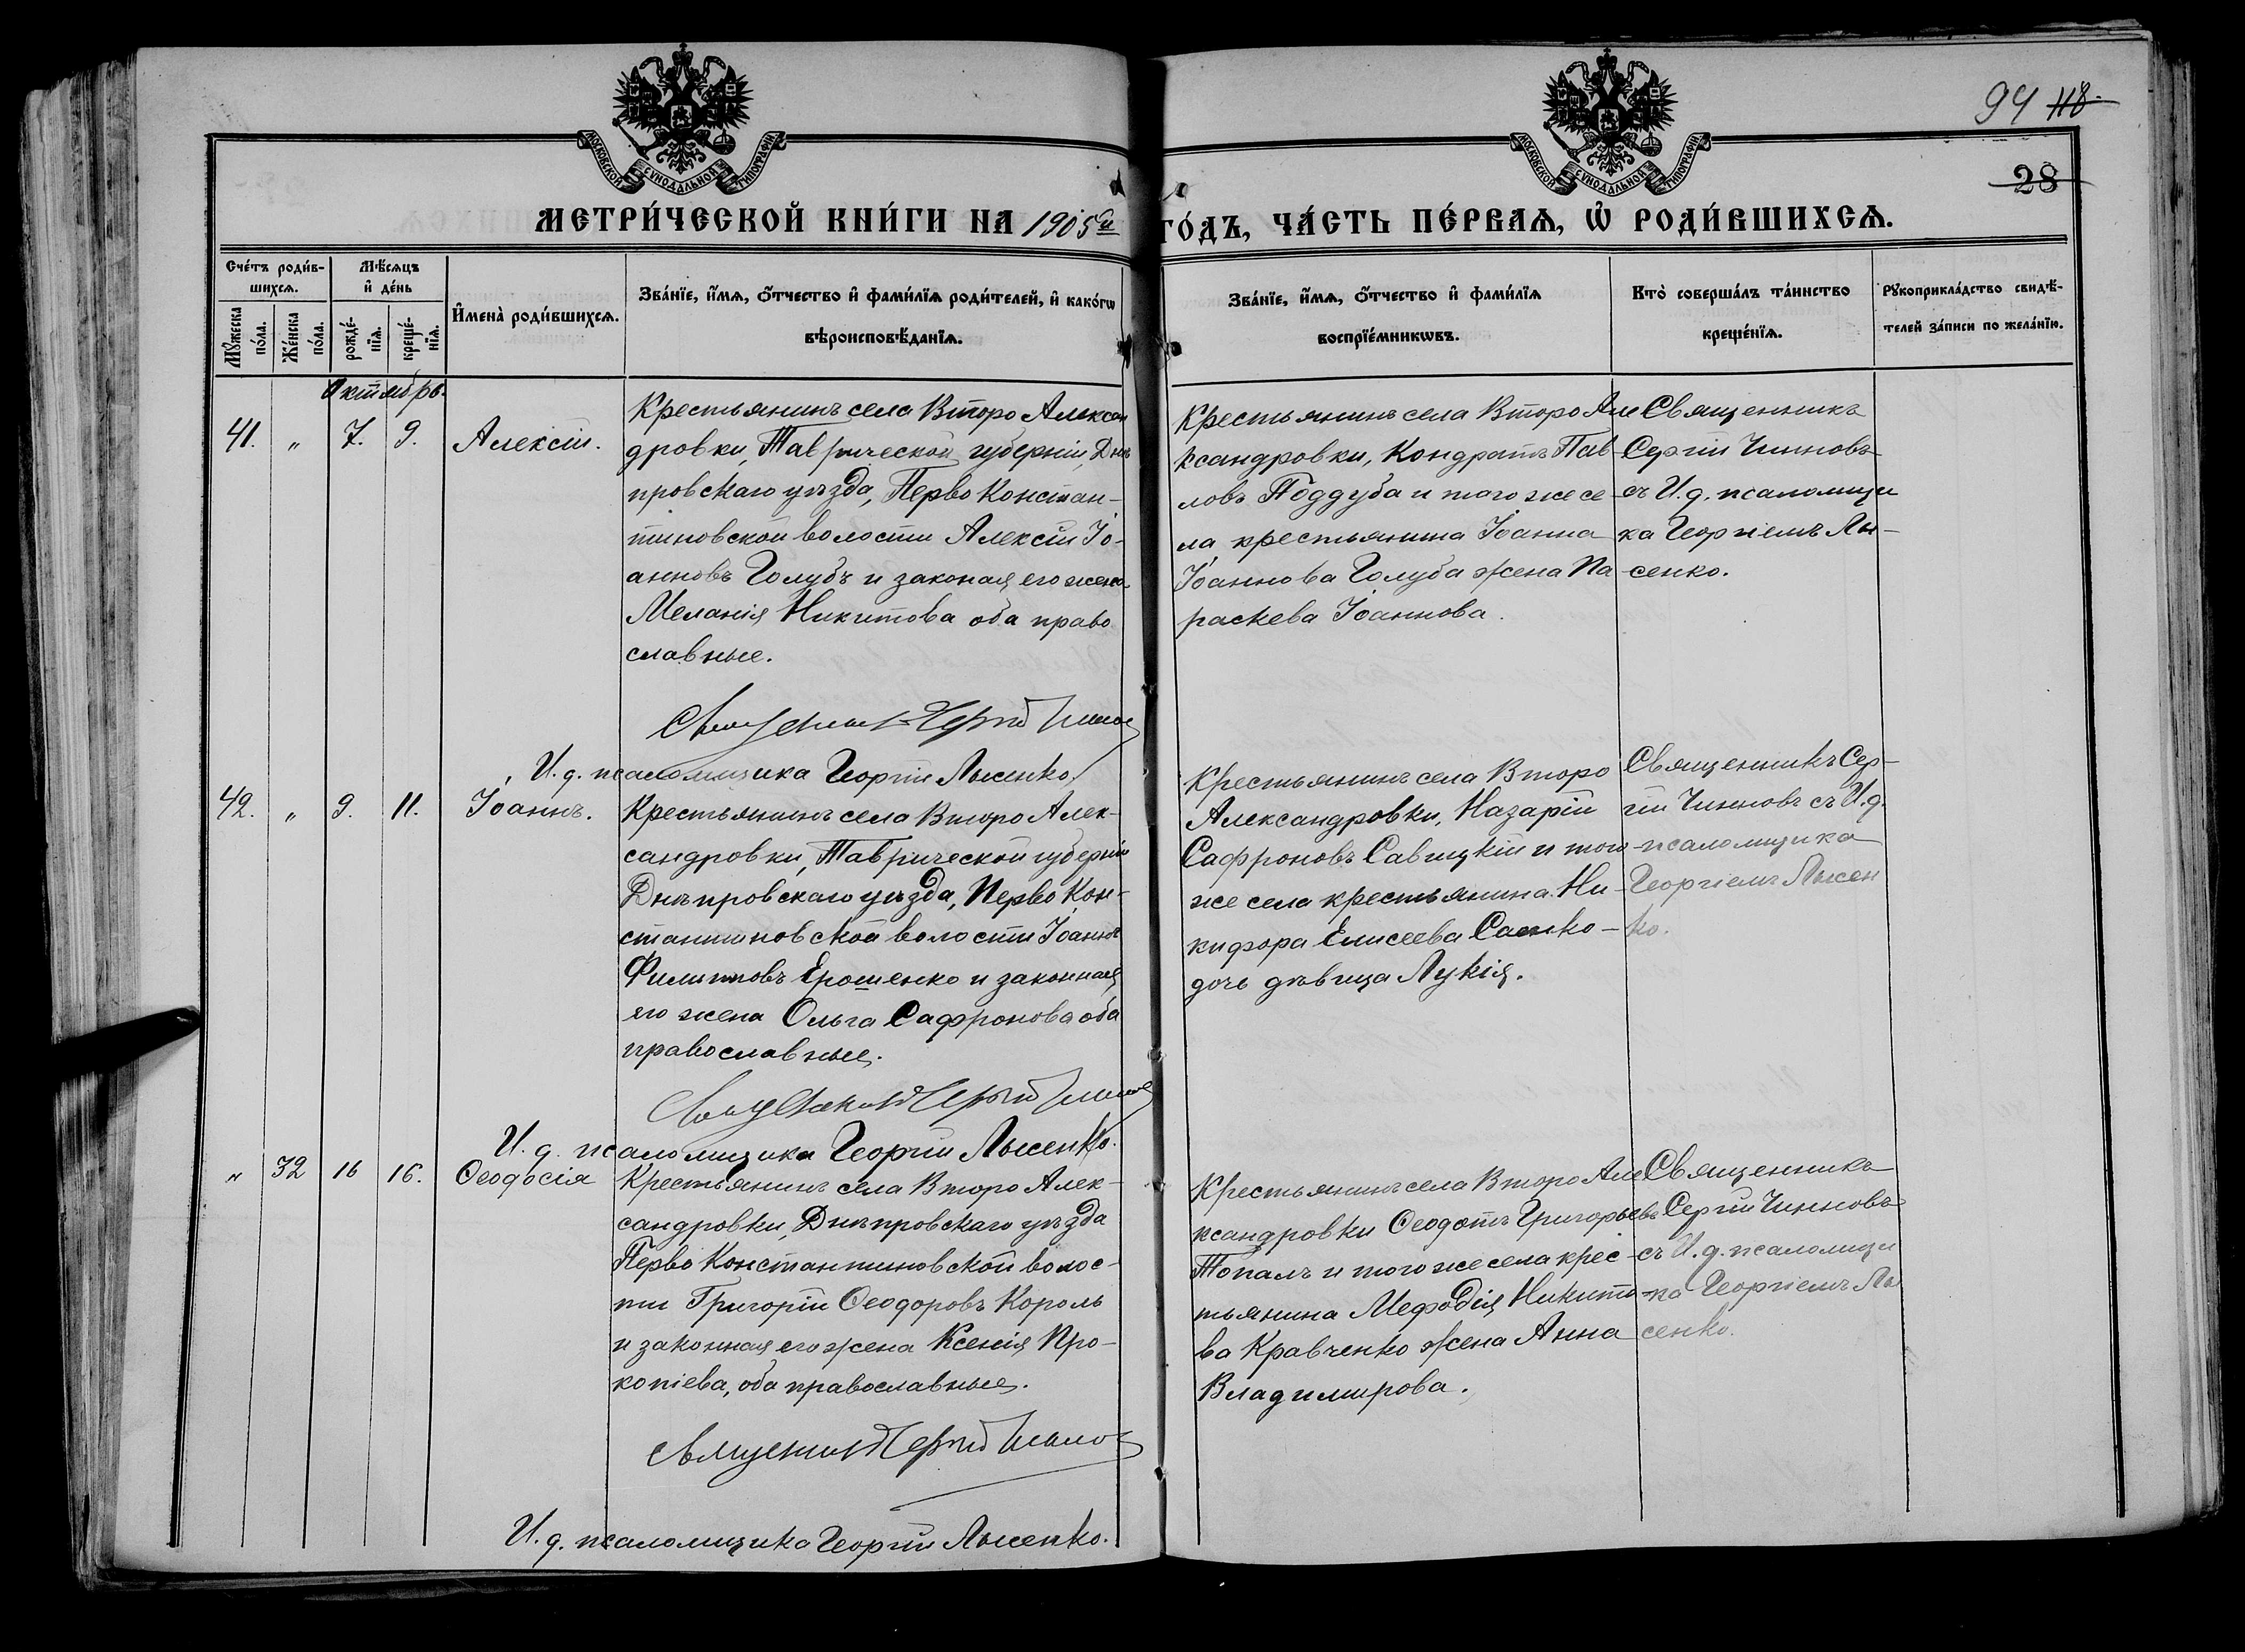 94 118.
28
МОСКОВСКОЙ СѴНОДАЛЬНОЙ ТИПОГРАФІИ
МОСКОВСКОЙ СѴНОДАЛЬНОЙ ТИПОГРАФІИ
МЕТРИ́ЧЕСКОЙ КНИ́ГИ НА 1905й ГО́ДЪ, ЧА́СТЬ ПЕ́РВАѦ, Ѡ҆ РОДИ́ВШИХСѦ.
Сче́тъ роди́в-
шихсѧ.
Мꙋ́жеска по́ла.
Же́нска по́ла.
Мѣ́сѧцъ
и҆ де́нь
рожде́-
нїѧ.
креще́-
нїѧ.
И҆мена̀ роди́вшихсѧ.
Зва́нїе, и҆́мѧ, ѻ҆́тчество и҆ фами́лїѧ роди́телей, и҆ како́гѡ
вѣроисповѣ́данїѧ.
Зва́нїе, и҆́мѧ, ѻ҆́тчество и҆ фами́лїѧ
воспрїе́мникѡвъ.
Кто̀ соверша́лъ та́инство
креще́нїѧ.
Рꙋкоприкла́дство свидѣ́-
телей за́писи по жела́нїю.
Октябрь.
41. „ 7. 9. Алексій.
Крестьянинъ села Второ Алексан
дровки, Таврической губерніи, Днѣ
провскаго уѣзда, Перво Констан-
тиновской волости Алексій Іо-
анновъ Голубъ и законая его жена
Меланія Никитова оба право
славные.
Крестьянинъ села Второ Але
ксандровки, Кондратъ Пав
ловъ Поддуба и того же се
ла крестьянина Іоанна
Іоаннова Голуба жена Па
раскева Іоаннова.
Священникъ
Сергій Чинновъ
съ И. д. псаломщи
ка Георгіемъ Лы-
сенко.
Священникъ Сергій Чиннов
И. д. псаломщика Георгій Лысенко.
42. „ 9. 11. Іоаннъ.
Крестьянинъ села Второ Алек-
сандровки, Таврической губерніи
Днѣпровскаго уѣзда, Перво Кон-
стантиновской волости Іоаннъ
Филипповъ Ерошенко и законная
его жена Ольга Сафронова оба
православные.
Крестьянинъ села Второ
Александровки, Назарій
Сафроновъ Савицкій и того
же села крестьянина Ни-
кифора Елисеева
дочь дѣвица Лукія.
Священникъ Сер-
гій Чинновъ съ И. д.
псаломщика
Георгіемъ Лысен
ко.
Священникъ Сергій Чиннов
И. д. псаломщика Георгій Лысенко.
„ 32 16 16. Ѳеодосія
Крестьянинъ села Второ Алек-
сандровки, Днѣпровскаго уѣзда
Перво Константиновской волос-
ти Григорій Ѳеодоровъ Король
и законная его жена Ксенія Про-
копіева, оба православные.
Крестьянинъ села Второ Але
ксандровки Ѳеодотъ Григорьевъ
Топалъ и того же села крес-
тьянина Меѳодія Никито-
ва Кравченко жена Анна
Владимирова.
Священникъ
Сергій Чинновъ
съ И. д. псаломщи
ка Георгіемъ Лы
сенко.
Священникъ Сергій Чиннов
И. д. псаломщика Георгій Лысенко.